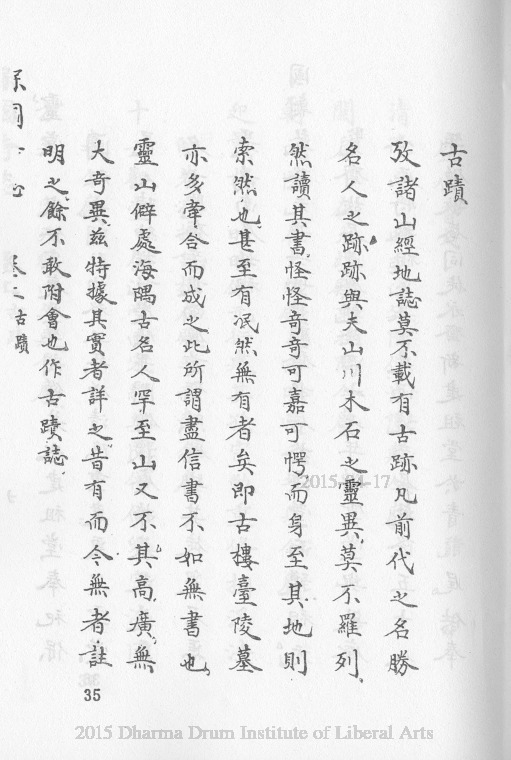 古蹟
攷諸山經地誌莫不載有古跡凡前代之名勝
名人之跡跡與夫山川木石之靈異莫不羅列
然讀其書怪怪奇奇可嘉可愕而身至其地則
索然也甚至有泯然無有者矣即古樓臺陵墓
亦多牽合而成之此所謂盡信書不如無書也
靈山僻處海隅古名人罕至山又不其高廣無
大奇異茲特據其實者詳之昔有而今無者註
明之餘不敢附會也作古蹟誌
卷二古蹟
35
2015-04-17
2015 Dharma Drum Institute of Liberal Arts